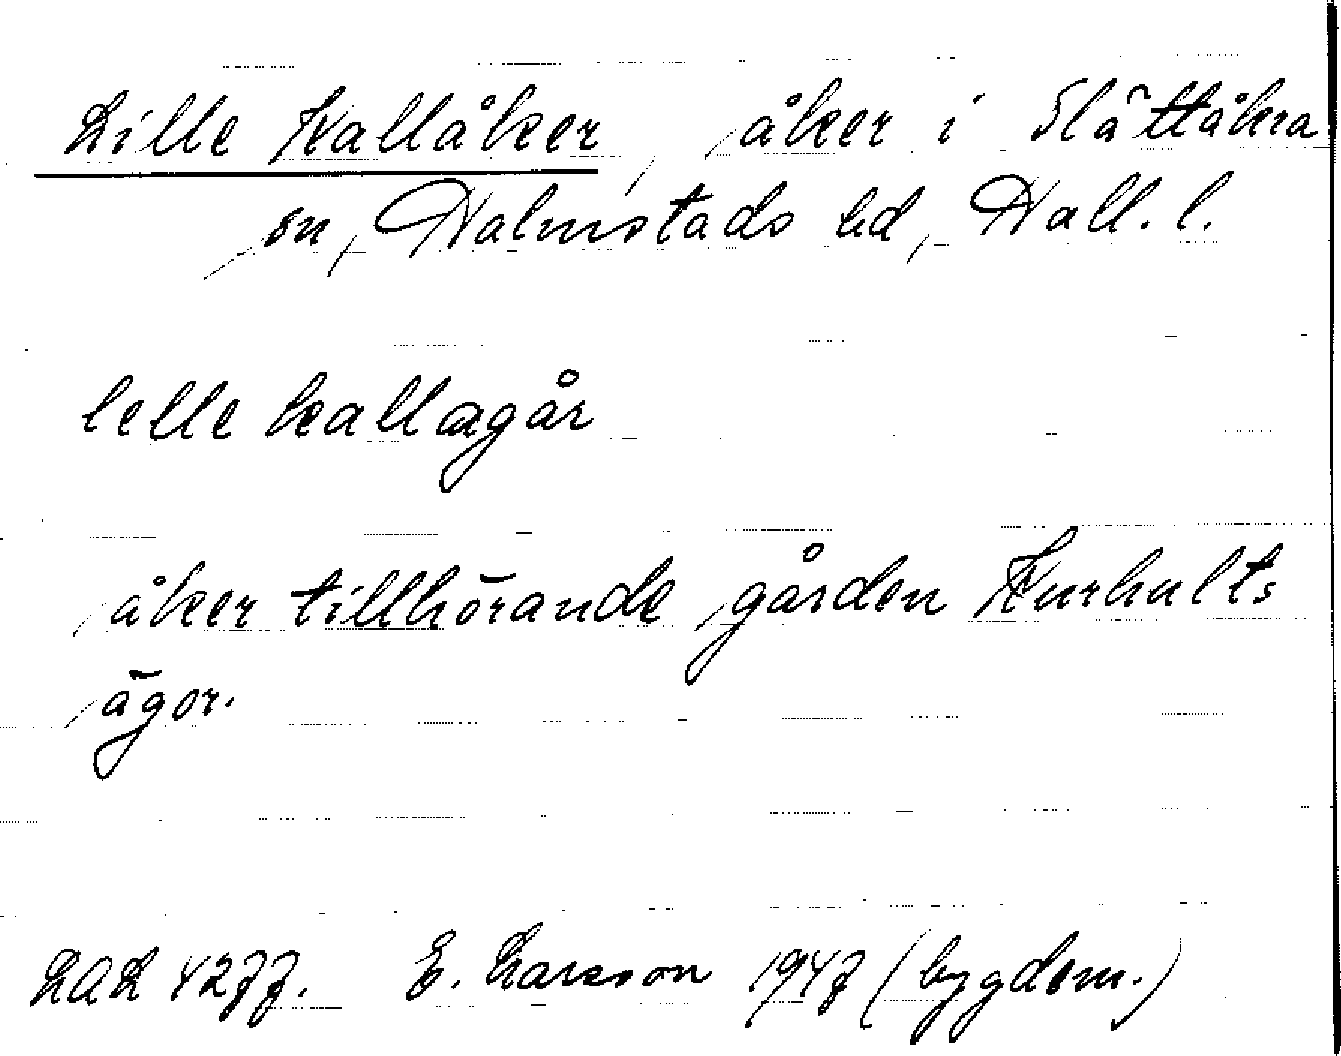 Lille Kallåker, åker i Slättåkra
sn, Halmstads hd, Hall. l.
lelle kallagår
åker tillhörande gården Kurhults
ägor.
LAL 4277. E. Larsson 1947 (bygdem.)